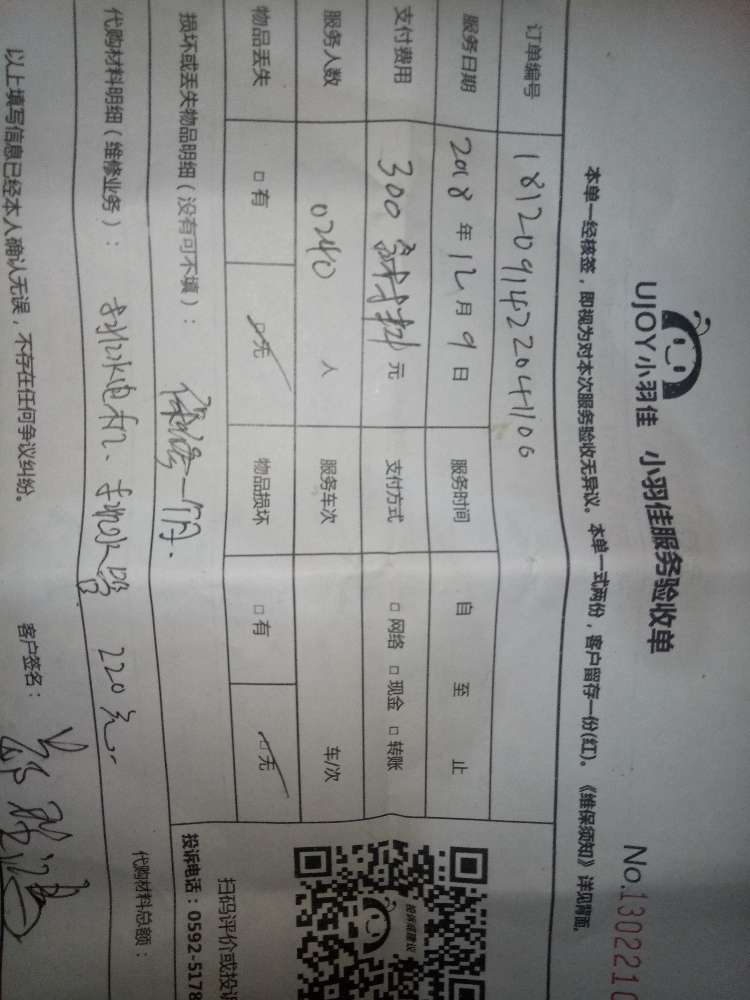 UJOY小羽佳 小羽佳服务验收单
No.1302210
本单一经核签，即视为对本次服务验收无异议。本单一式两份，客户留存一份(红)。《维保须知》详见背面。
订单编号 1812091422041106
服务日期 2018 年 12 月 9 日 服务时间 自 至 止
支付费用 300 元 支付方式 □ 网络 □ 现金 □ 转账
服务人数 0240 人 服务车次 车/次
物品丢失 □ 有 □ 无 物品损坏 □ 有 □ 无
损坏或丢失物品明细（没有可不填）：
代购材料明细（维修业务）： 220元. 代购材料总额：
以上填写信息已经本人确认无误，不存在任何争议纠纷。 客户签名：
投诉或建议
扫码评价或投诉
投诉电话：0592-5178